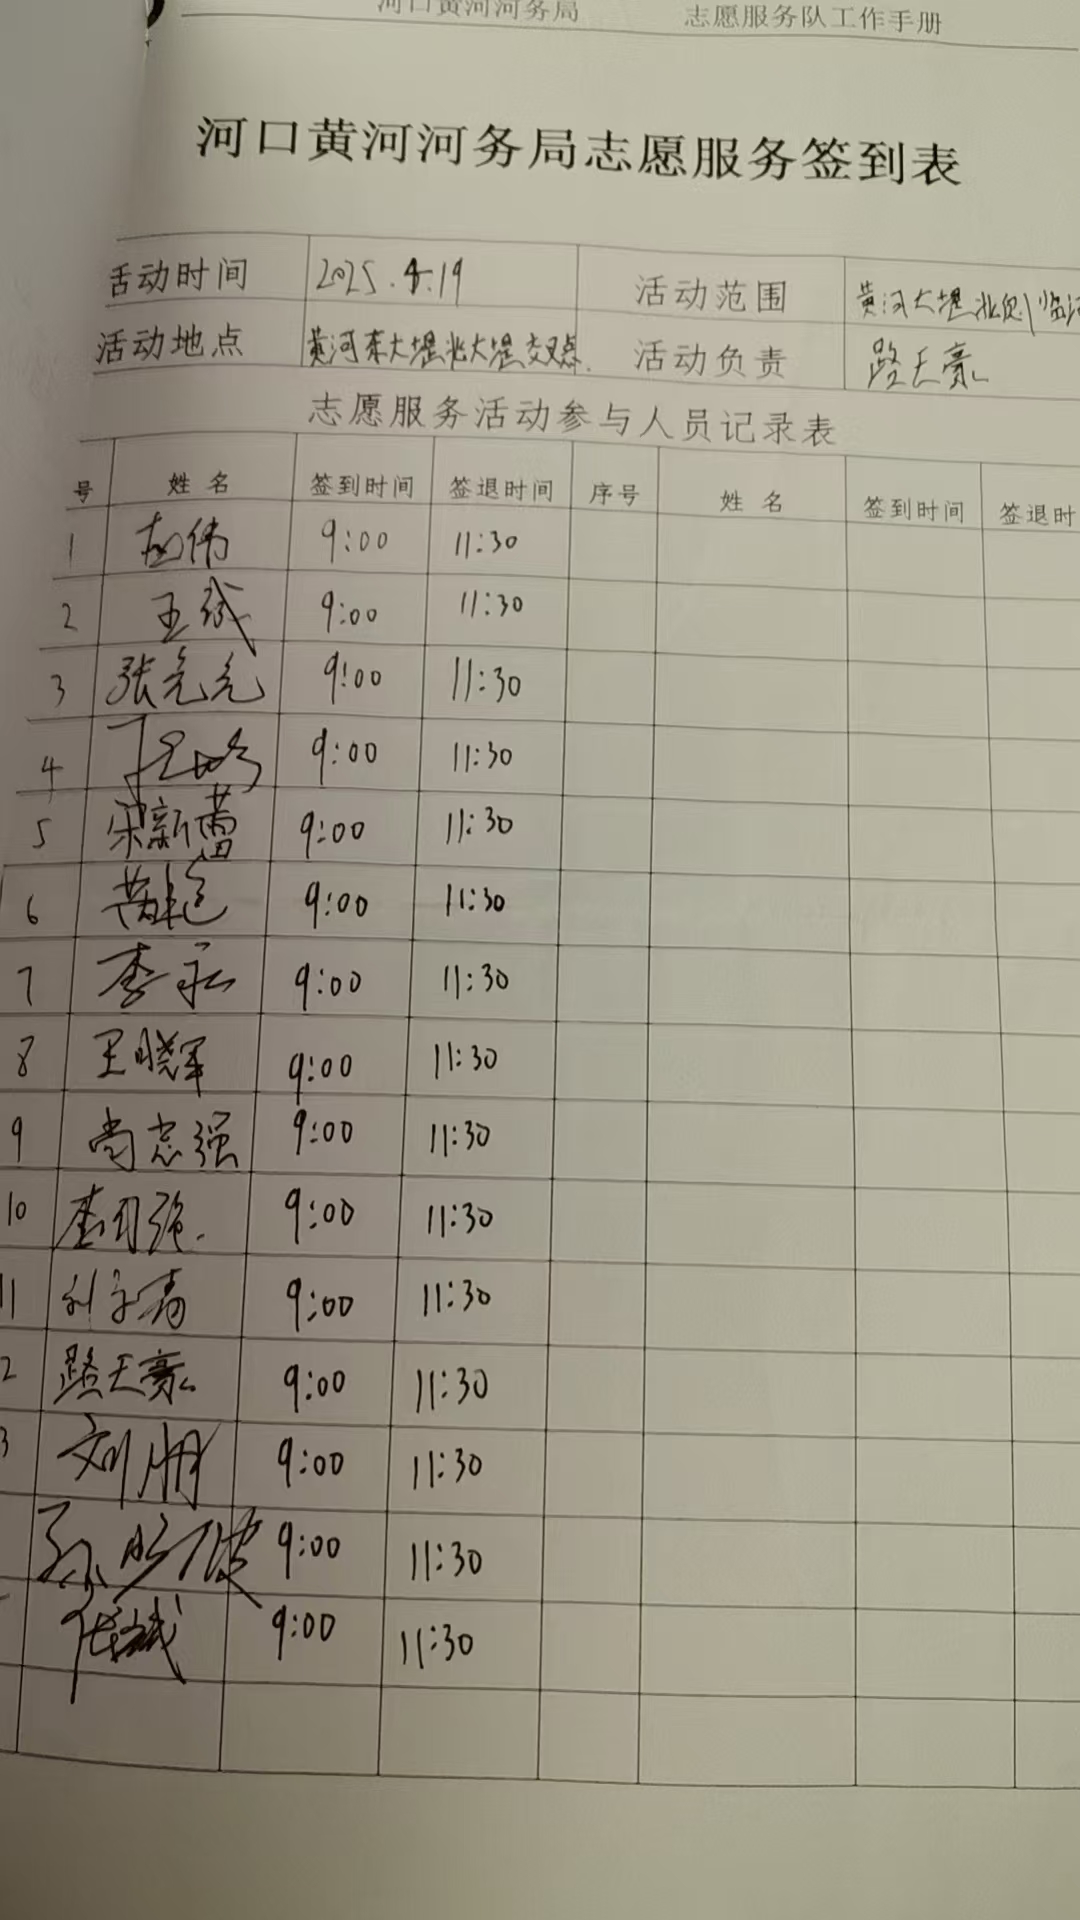 河口黄河河务局 志愿服务队工作手册
河口黄河河务局志愿服务签到表
活动时间 2025.4.19 活动范围 黄河大堤北侧临河
活动地点 黄河东大堤北大堤交叉点. 活动负责 路天豪
志愿服务活动参与人员记录表
号 姓名 签到时间 签退时间 序号 姓名 签到时间 签退时
1 赵伟 9:00 11:30
2 王斌 9:00 11:30
3 张亮亮 9:00 11:30
4 9:00 11:30
5 宋新蕾 9:00 11:30
6 9:00 11:30
7 李 9:00 11:30
8 王晓军 9:00 11:30
9 尚志强 9:00 11:30
10 李国强. 9:00 11:30
11 刘 9:00 11:30
2 路天豪 9:00 11:30
3 刘朋 9:00 11:30
孙 9:00 11:30
9:00 11:30